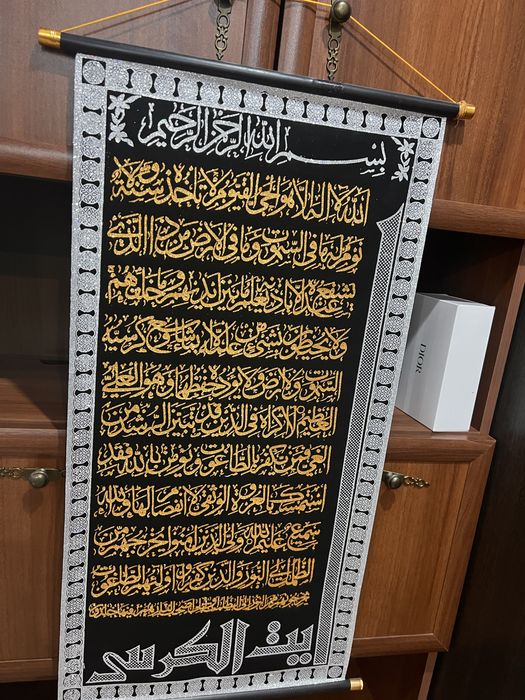 بسم الله الرحمن الرحيم
الله لا اله الا هو الحي القيوم لا تأخذه سنة ولا
نوم له ما في السموات وما في الارض من ذا الذي
يشفع عنده الا باذنه يعلم ما بين ايديهم وما خلفهم
ولا يحيطون بشئ من علمه الا بما شاء وسع كرسيه
السموات والارض ولا يؤده حفظهما وهو العلي
العظيم لا اكراه في الدين قد تبين الرشد من
الغي فمن يكفر بالطاغوت ويؤمن بالله فقد
استمسك بالعروة الوثقى لا انفصام لها والله
سميع عليم الله ولي الذين آمنوا يخرجهم من
الظلمات الى النور والذين كفروا اولياؤهم الطاغوت
يخرجونهم من النور الى الظلمات اولئك اصحاب النار هم فيها خالدون
ايت الكرسى
DIOR